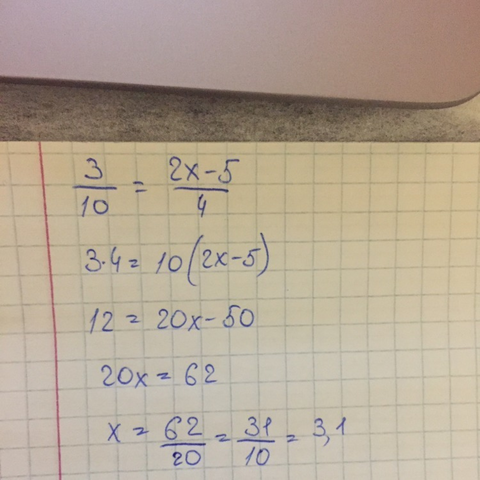 3/10 = (2x-5)/4
3·4 = 10(2x-5)
12 = 20x-50
20x = 62
x = 62/20 = 31/10 = 3,1